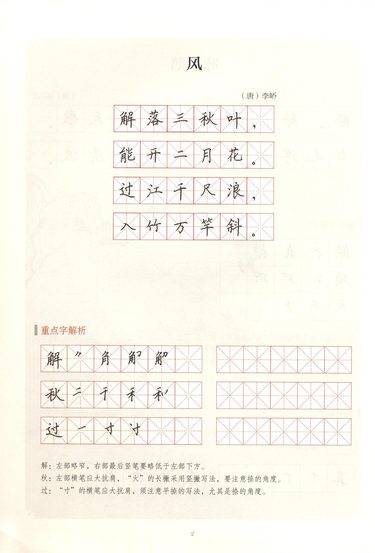 风
（唐）李峤
解落三秋叶，
能开二月花。
过江千尺浪，
入竹万竿斜。
重点字解析
解
秋 二 千 禾
过 一 寸 讨
解：左部略窄，右部最后竖笔要略低于左部下方。
秋：左部横笔应大扶肩，“火”的长撇采用竖撇写法，要注意捺的角度。
过：“寸”的横笔应大扶肩，须注意平捺的写法，尤其是捺的角度。
2